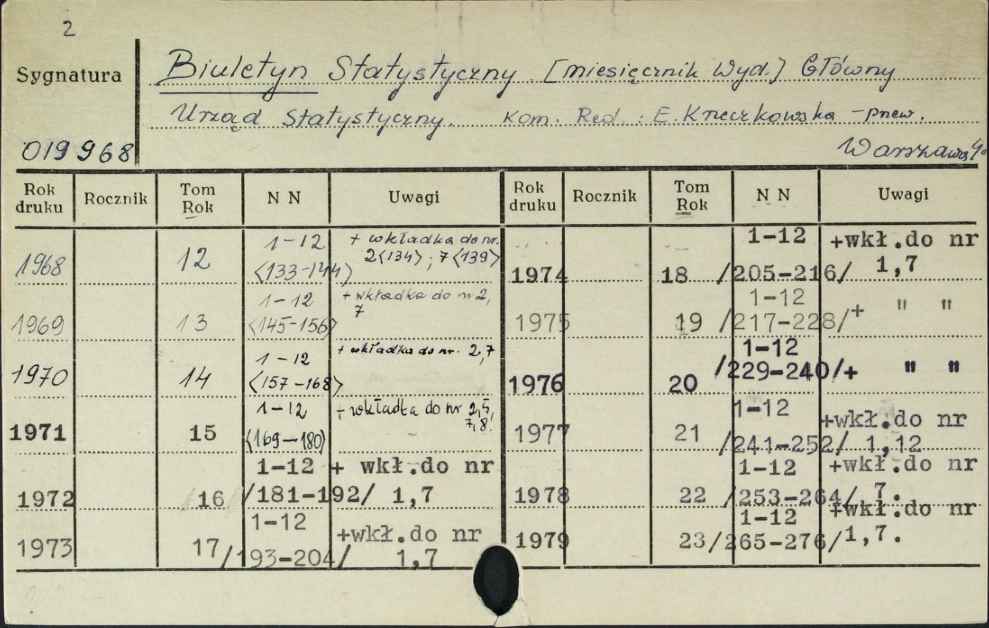 2
Sygnatura
Biuletyn Statystyczny [miesięcznik Wyd.] Główny
Urząd Statystyczny. Kom. Red.: E. Krzeczkowska - przew.
019968 Warszawa
Rok druku Rocznik Tom Rok N N Uwagi Rok druku Rocznik Tom Rok N N Uwagi
1968 12 1-12 <133-144> + wkładka do nr. 2<134>; 7<139>
1969 13 1-12 <145-156> + wkładka do nr 2, 7
1970 14 1-12 <157-168> + wkładka do nr. 2,7
1971 15 1-12 <169-180> + wkładka do nr 2,5, 7,8.
1972 16 1-12 /181-192/ + wkł.do nr 1,7
1973 17 1-12 /193-204/ +wkł.do nr 1,7
1974 18 1-12 /205-216/ +wkł.do nr 1,7
1975 19 1-12 /217-228/ + " "
1976 20 1-12 /229-240/ + " "
1977 21 1-12 /241-252/ +wkł.do nr 1,12
1978 22 1-12 /253-264/ +wkł.do nr 7.
1979 23 1-12 /265-276/ +wkł.do nr 1,7.